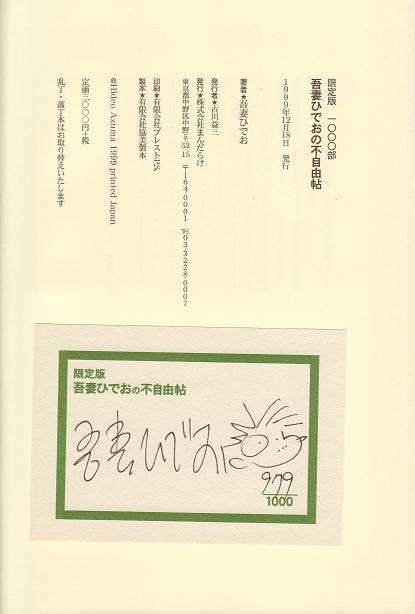 限定版 一〇〇〇部
吾妻ひでおの不自由帖
1999年12月18日 発行
著者★吾妻ひでお
発行者★古川益三
発行★株式会社まんだらけ
東京都中野区中野5-52-15 〒164-0001 ℡03-3228-0007
印刷★有限会社プレストPS
製本★有限会社協美製本
©Hideo Azuma 1999 printed Japan
定価三〇〇〇円+税
乱丁・落丁本はお取り替えいたします
限定版
吾妻ひでおの不自由帖
吾妻ひでお
979
1000